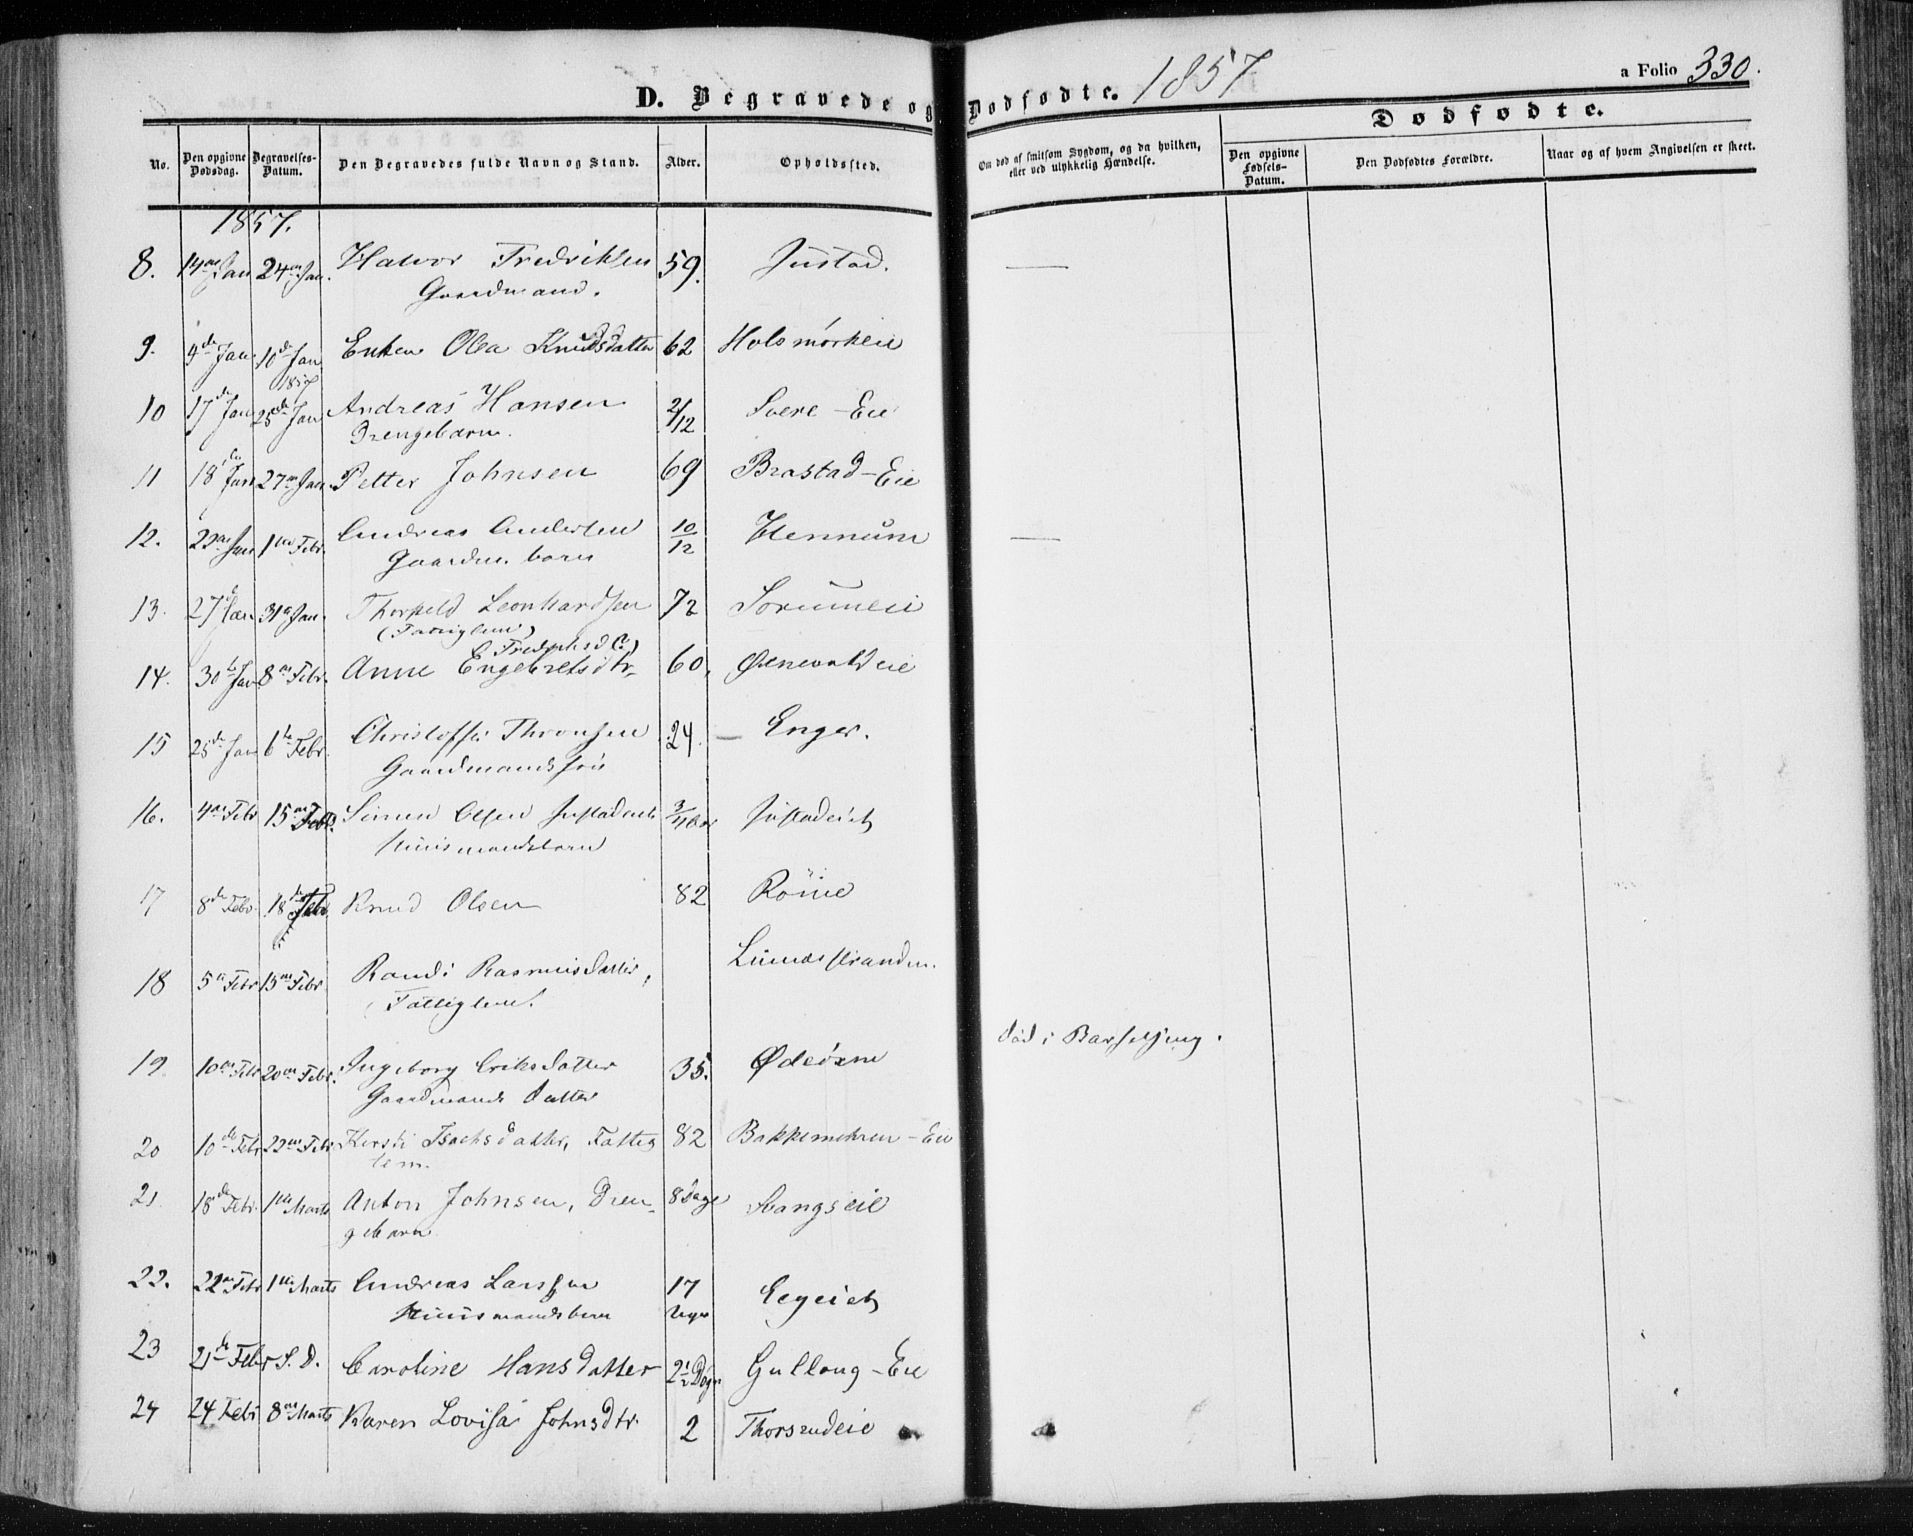 D. Begravede og Dødfødte. 1857
a Folio 330.
Dødfødte.
No.
Den opgivne Dødsdag.
Begravelses-Datum.
Den Begravedes fulde Navn og Stand.
Alder.
Opholdssted.
Om død af smitsom Sygdom, og da hvilken, eller ved ulykkelig Hændelse.
Den opgivne Fødsels-Datum.
Den Dødfødtes Forældre.
Naar og af hvem Angivelsen er skeet.
1857.
8. 14de Jan 24de Jan. Halvor Fredriksen 59. Justad. —
Gaardmand.
9. 9de Jan 10de Jan 1857 Enken Olea Knudsdatter 62 Holsmørkeie
10 17de Jan 25de Jan Andreas Hansen 2/12 Svere-Eie
Drengebarn.
11 18de Jan 27de Jan. Petter Johnsen 69 Brastad-Eie
12. Jan 1ste Febr. Andreas Andersen 10/12 Hennum —
Gaardm. barn
13. 27de Jan 31te Jan. Thorkeld Leonhardsen 72 Sorumeie
(Fattiglem)
14. 30te Jan 8de Febr. Anne Engebretsdtr. 60.
15 25de Jan 6te Febr. Christoffer Thronsen 24. — Enger.
Gaardmandssøn
16. 4de Febr 15de Febr. Simen Olsen Justadeie 3/4 Aar Justadeiet
Huusmandsbarn
17 8de Febr. 18de Febr. Knud Olsen 82
18 5te Febr 15de Febr. Randi Rasmusdatter, Lumasstranden.
(Fattiglem.
19 10de Febr 20de Febr. Ingeborg Eriksdatter 35. død i Barselseng.
Gaardmands datter
20 10de Febr 22de Febr Kersti Isachsdatter, Fattig 82 Bakkemehren-Eie
lem.
21 18de Febr. 1ste Marts Anton Johnsen, Dren- 8 Dage Stangseie
gebarn
22. 22de Febr 1ste Marts Andreas Larssen 17 Uger Eegeiet
Huusmandsbarn
23 21de Febr S. D. Caroline Hansdatter 2½ Døgn Gullaug-Eie
24 24 Febr 8de Marts Karen Lovisa Johnsdtr. 2 Thorsrudeie